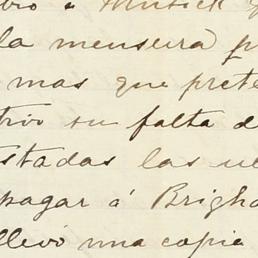 la mensura) p
mas que prete
trio su falta d
stadas las u
pagar á Brigha
llevó una copia